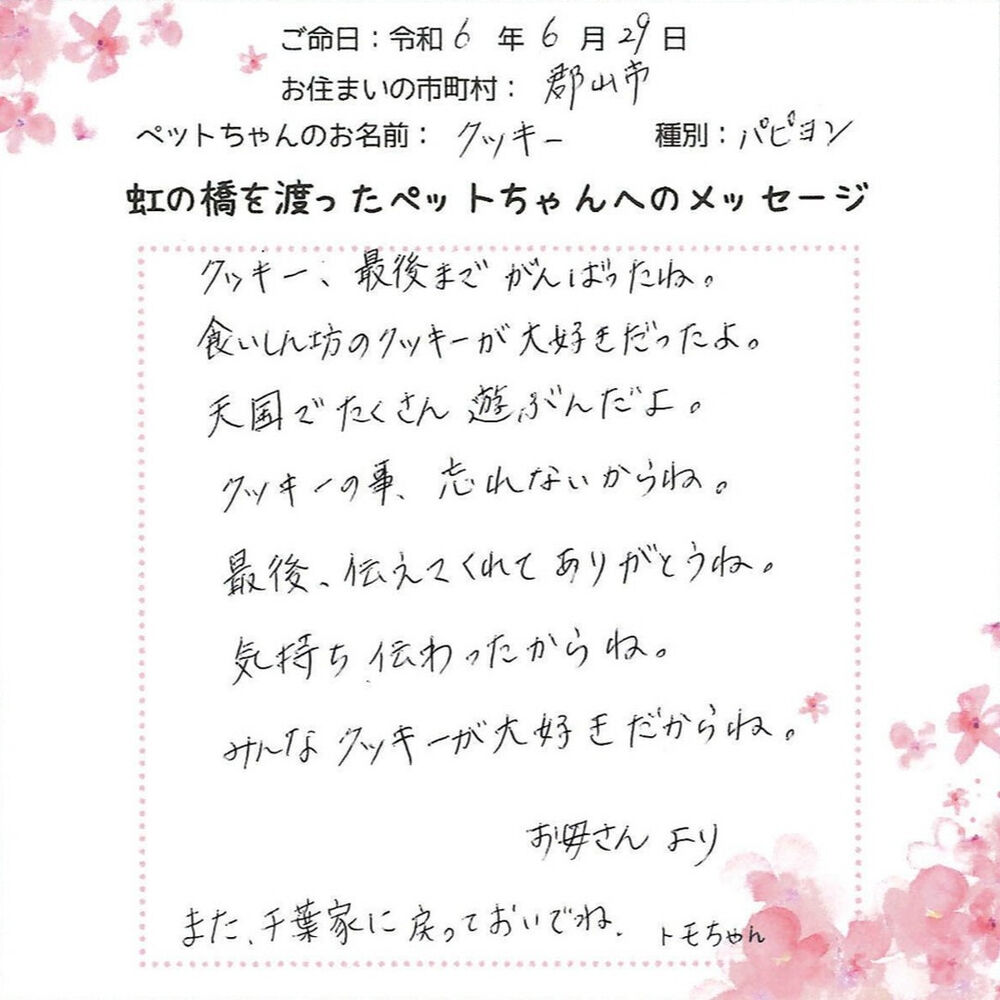 ご命日：令和6年6月29日
お住まいの市町村： 郡山市
ペットちゃんのお名前： クッキー 種別：パピヨン
虹の橋を渡ったペットちゃんへのメッセージ
クッキー、最後までがんばったね。
食いしん坊のクッキーが大好きだったよ。
天国でたくさん遊ぶんだよ。
クッキーの事、忘れないからね。
最後、伝えてくれてありがとうね。
気持ち伝わったからね。
みんなクッキーが大好きだからね。
お母さんより
また、千葉家に戻っておいでね. トモちゃん